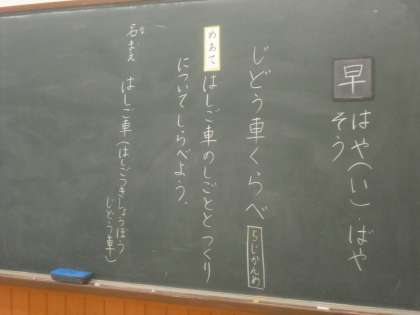 早
はや(い)・ばや
そう
じどう車くらべ
5じかんめ
めあて
はしご車のしごととつくり
についてしらべよう.
名まえ
な
はしご車(はしごつきしょうぼう
じどう車)